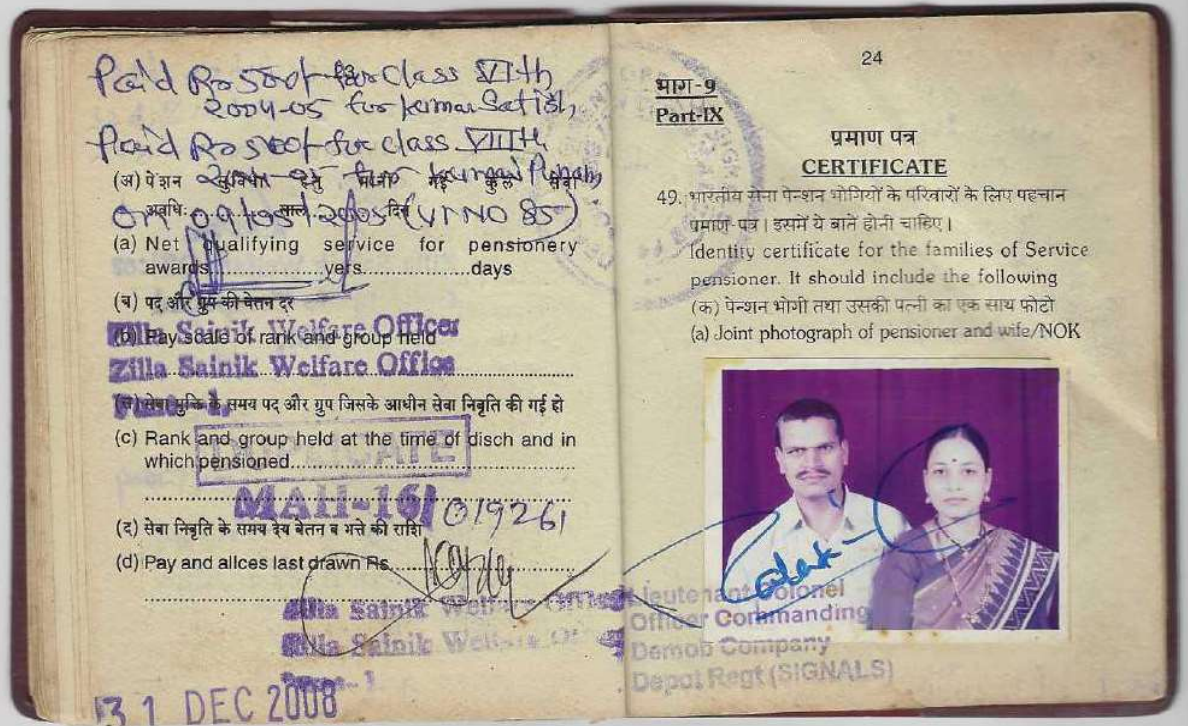 Paid Rs 500/- for class VIth
2004-05 for kumar Satish,
Paid Rs 500/- for class VIIIth
(अ) पेंशन सुविधा हेतु मानी गई कुल सेवा
अवधि: साल दिन
on 09/05/2005 (VI NO 85)
(a) Net qualifying service for pensionery
awards..............yers..............days
(ब) पद और ग्रुप की वेतन दर
Zilla Sainik Welfare Officer
(b) Pay scale of rank and group held
Zilla Sainik Welfare Office
(स) सेवा मुक्ति के समय पद और ग्रुप जिसके आधीन सेवा निवृति की गई हो
(c) Rank and group held at the time of disch and in
DUPLICATE
which pensioned..............
MAH-16/019261
(द) सेवा निवृति के समय देय बेतन व भत्ते की राशि
(d) Pay and allces last drawn Rs..............
Zilla Sainik Welfare Officer
Zilla Sainik Welfare
31 DEC 2008
24
भाग-9
Part-IX
प्रमाण पत्र
CERTIFICATE
49. भारतीय सेना पेन्शन भोगियों के परिवारों के लिए पहचान
प्रमाण-पत्र। इसमें ये बातें होनी चाहिए।
Identity certificate for the families of Service
pensioner. It should include the following
(क) पेन्शन भोगी तथा उसकी पत्नी का एक साथ फोटो
(a) Joint photograph of pensioner and wife/NOK
Lieutenant Colonel
Officer Commanding
Demob Company
Depot Regt (SIGNALS)